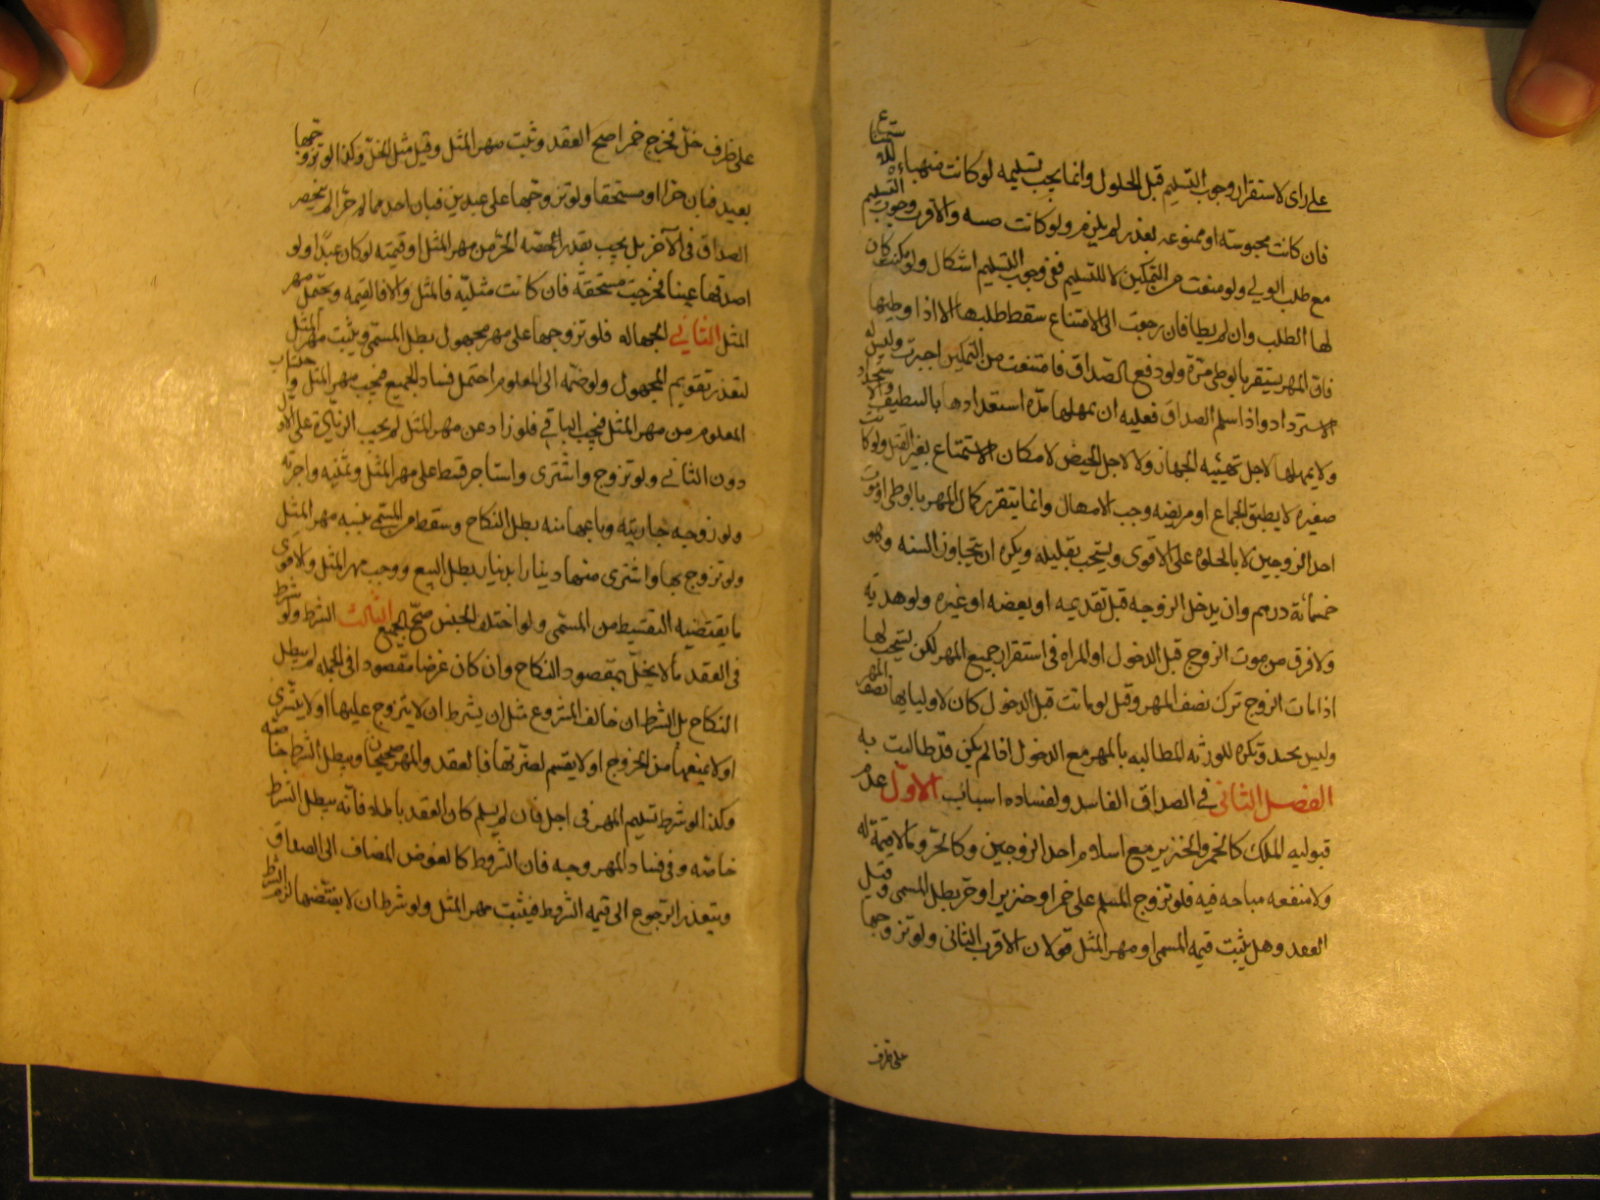 على راى لاستقرار وجوب التسليم قبل الحلول وانما يجب تسليمه لو كانت مهياة للاستمتاع
فان كانت محبوسة او ممنوعه بعذر لم يلزم ولو كانت صبيه والاقرب وجوب التسليم
مع طلب الولي ولو منعت من التمكين لا للتسليم ففى وجوب التسليم اشكال ولو مكنت كان
لها الطلب وان لم يطا فان رجعت الى الامتناع سقط طلبها الا اذا وطيها
فان المهر يستقر بالوطى مرة ولو دفع الصداق فامتنعت من التمكين اجبرت وليس له
الاسترداد واذا سلم الصداق فعليه ان يمهلها مدة استعدادها بالتنظيف والاستحداد
ولا يمهلها لاجل تهيئه الجهاز ولا لاجل الحيض لامكان الاستمتاع بغير القبل ولو كانت
صغيرة لا يطيق الجماع او مريضه وجب الامهال وانما يتقرر كمال المهر بالوطى او موت
احد الزوجين لا بالخلوة على الاقوى ويستحب تقليله ويكره ان يتجاوز السنه وهو
خمسمائة درهم وان يدخل الزوجه قبل تقديمه او بعضه او غيره ولو هديه
ولا فرق من موت الزوج قبل الدخول او المراه فى استقرار جميع المهر لكن يستحب لها
اذا مات الزوج ترك نصف المهر وقيل لو ماتت قبل الدخول كان لاوليايها نصف المهر
وليس بجيد ويكره للورثه المطالبه بالمهر مع الدخول اذا لم يكن قد طالبت به
الفصل الثانى فى الصداق الفاسد ولفساده اسباب الاول عدم
قبوليه الملك كالخمر والخنزير مع اسلام احد الزوجين وكالحر وما لا قيمة له
ولا منفعه مباحه فيه فلو تزوج المسلم على خمر او خنزير او حر بطل المسمى وقيل
العقد وهل يثبت قيمه المسمى او مهر المثل قولان الاقرب الثانى ولو تزوجها
على ظرف
على ظرف خل فخرج خمرا صح العقد وثبت مهر المثل وقيل مثل الخل وكذا لو تزوجها
بعبد فبان حرا او مستحقا ولو تزوجها على عبدين فبان احدهما حرا لم ينحصر
الصداق فى الآخر بل يجب بقدر حصه الحر من مهر المثل او قيمته لو كان عبدا ولو
اصدقها عينا فخرجت مستحقه فان كانت مثليه فالمثل والا فالقيمه ويحتمل مهر
المثل الثاني الجهاله فلو تزوجها على مهر مجهول بطل المسمى ويثبت مهر المثل
لتعذر تقويم المجهول ولو ضمه الى المعلوم احتمل فساد الجميع فيجب مهر المثل واحتساب
المعلوم من مهر المثل فيجب الباقي فلو زاد عن مهر المثل لم يجب الزيادة على الاول
دون الثاني ولو تزوج واشترى واستاجر قسط على مهر المثل وثمنه واجرته
ولو زوجه جاريته وباعها منه بطل النكاح وسقط من المسمى بنسبه مهر المثل
ولو تزوج بها واشترى منها دينارا بدينار بطل البيع ووجب مهر المثل والاقوى
ما يقتضيه التقسيط من المسمى ولو اختلف الجنس صح الجميع الثالث الشرط ولو شرط
فى العقد ما لا يخل بمقصود النكاح وان كان غرضا مقصودا فى الجمله لم يبطل
النكاح بل الشرط ان خالف المشروع مثل ان يشرط ان لا يتزوج عليها او لا يتسرى
او لا يمنعها من الخروج او لا يقسم لضرتها فالعقد والمهر صحيحان ويبطل الشرط خاصه
وكذا لو شرط تسليم المهر فى اجل فان لم يسلم كان العقد باطلا فانه يبطل الشرط
خاصه وفى فساد المهر وجه فان الشروط كالعوض المضاف الى الصداق
ويتعذر الرجوع الى قيمه الشروط فيثبت مهر المثل ولو شرط ان لا يفتضها لزم الشرط